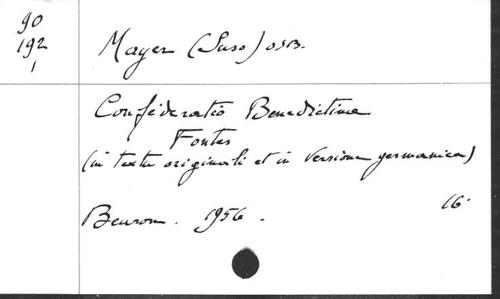 90
192
1
Mayer (Suso) OSB.
Confoederatio Benedictina
Fontes
(in textu originali et in versione germanica)
Beuron. 1956. 16°